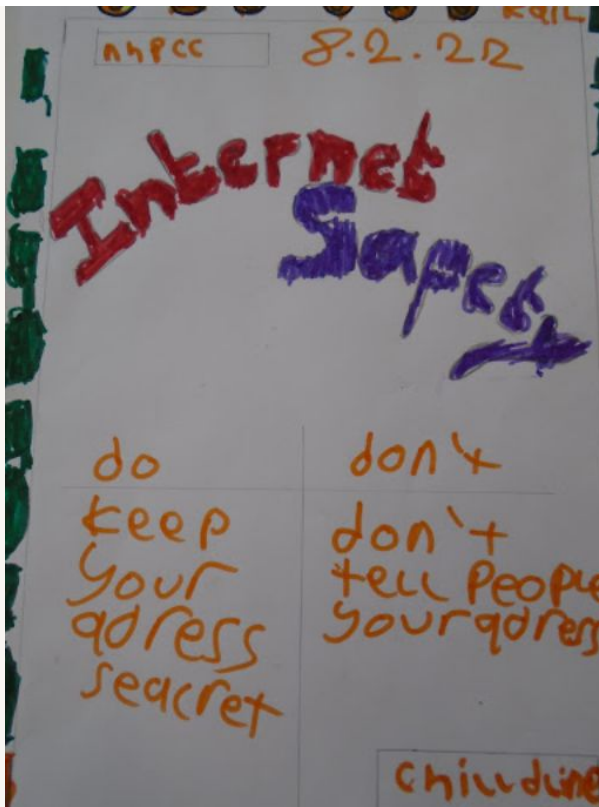 nnpcc
8.2.22
Internet
Safety
do
don't
keep
your
adress
seacret
don't
tell people
your adress
chilldline